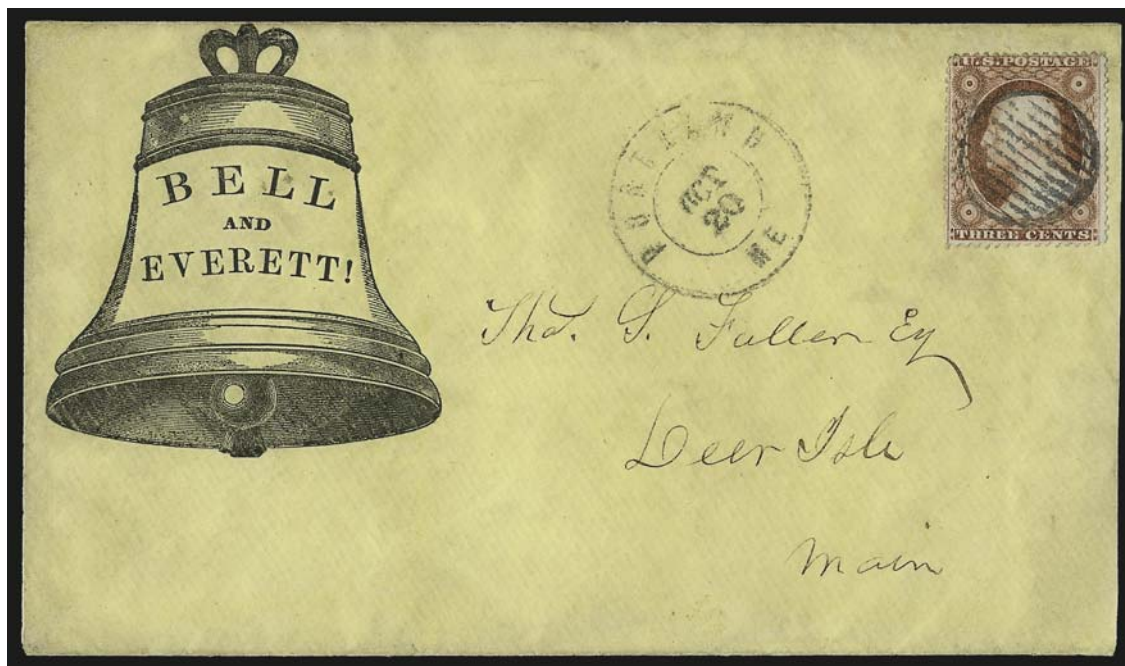 BELL
AND
EVERETT!
PORTLAND ME
OCT
20
U.S. POSTAGE
THREE CENTS
Tho. S. Fuller Eq
Deer Isle
Main